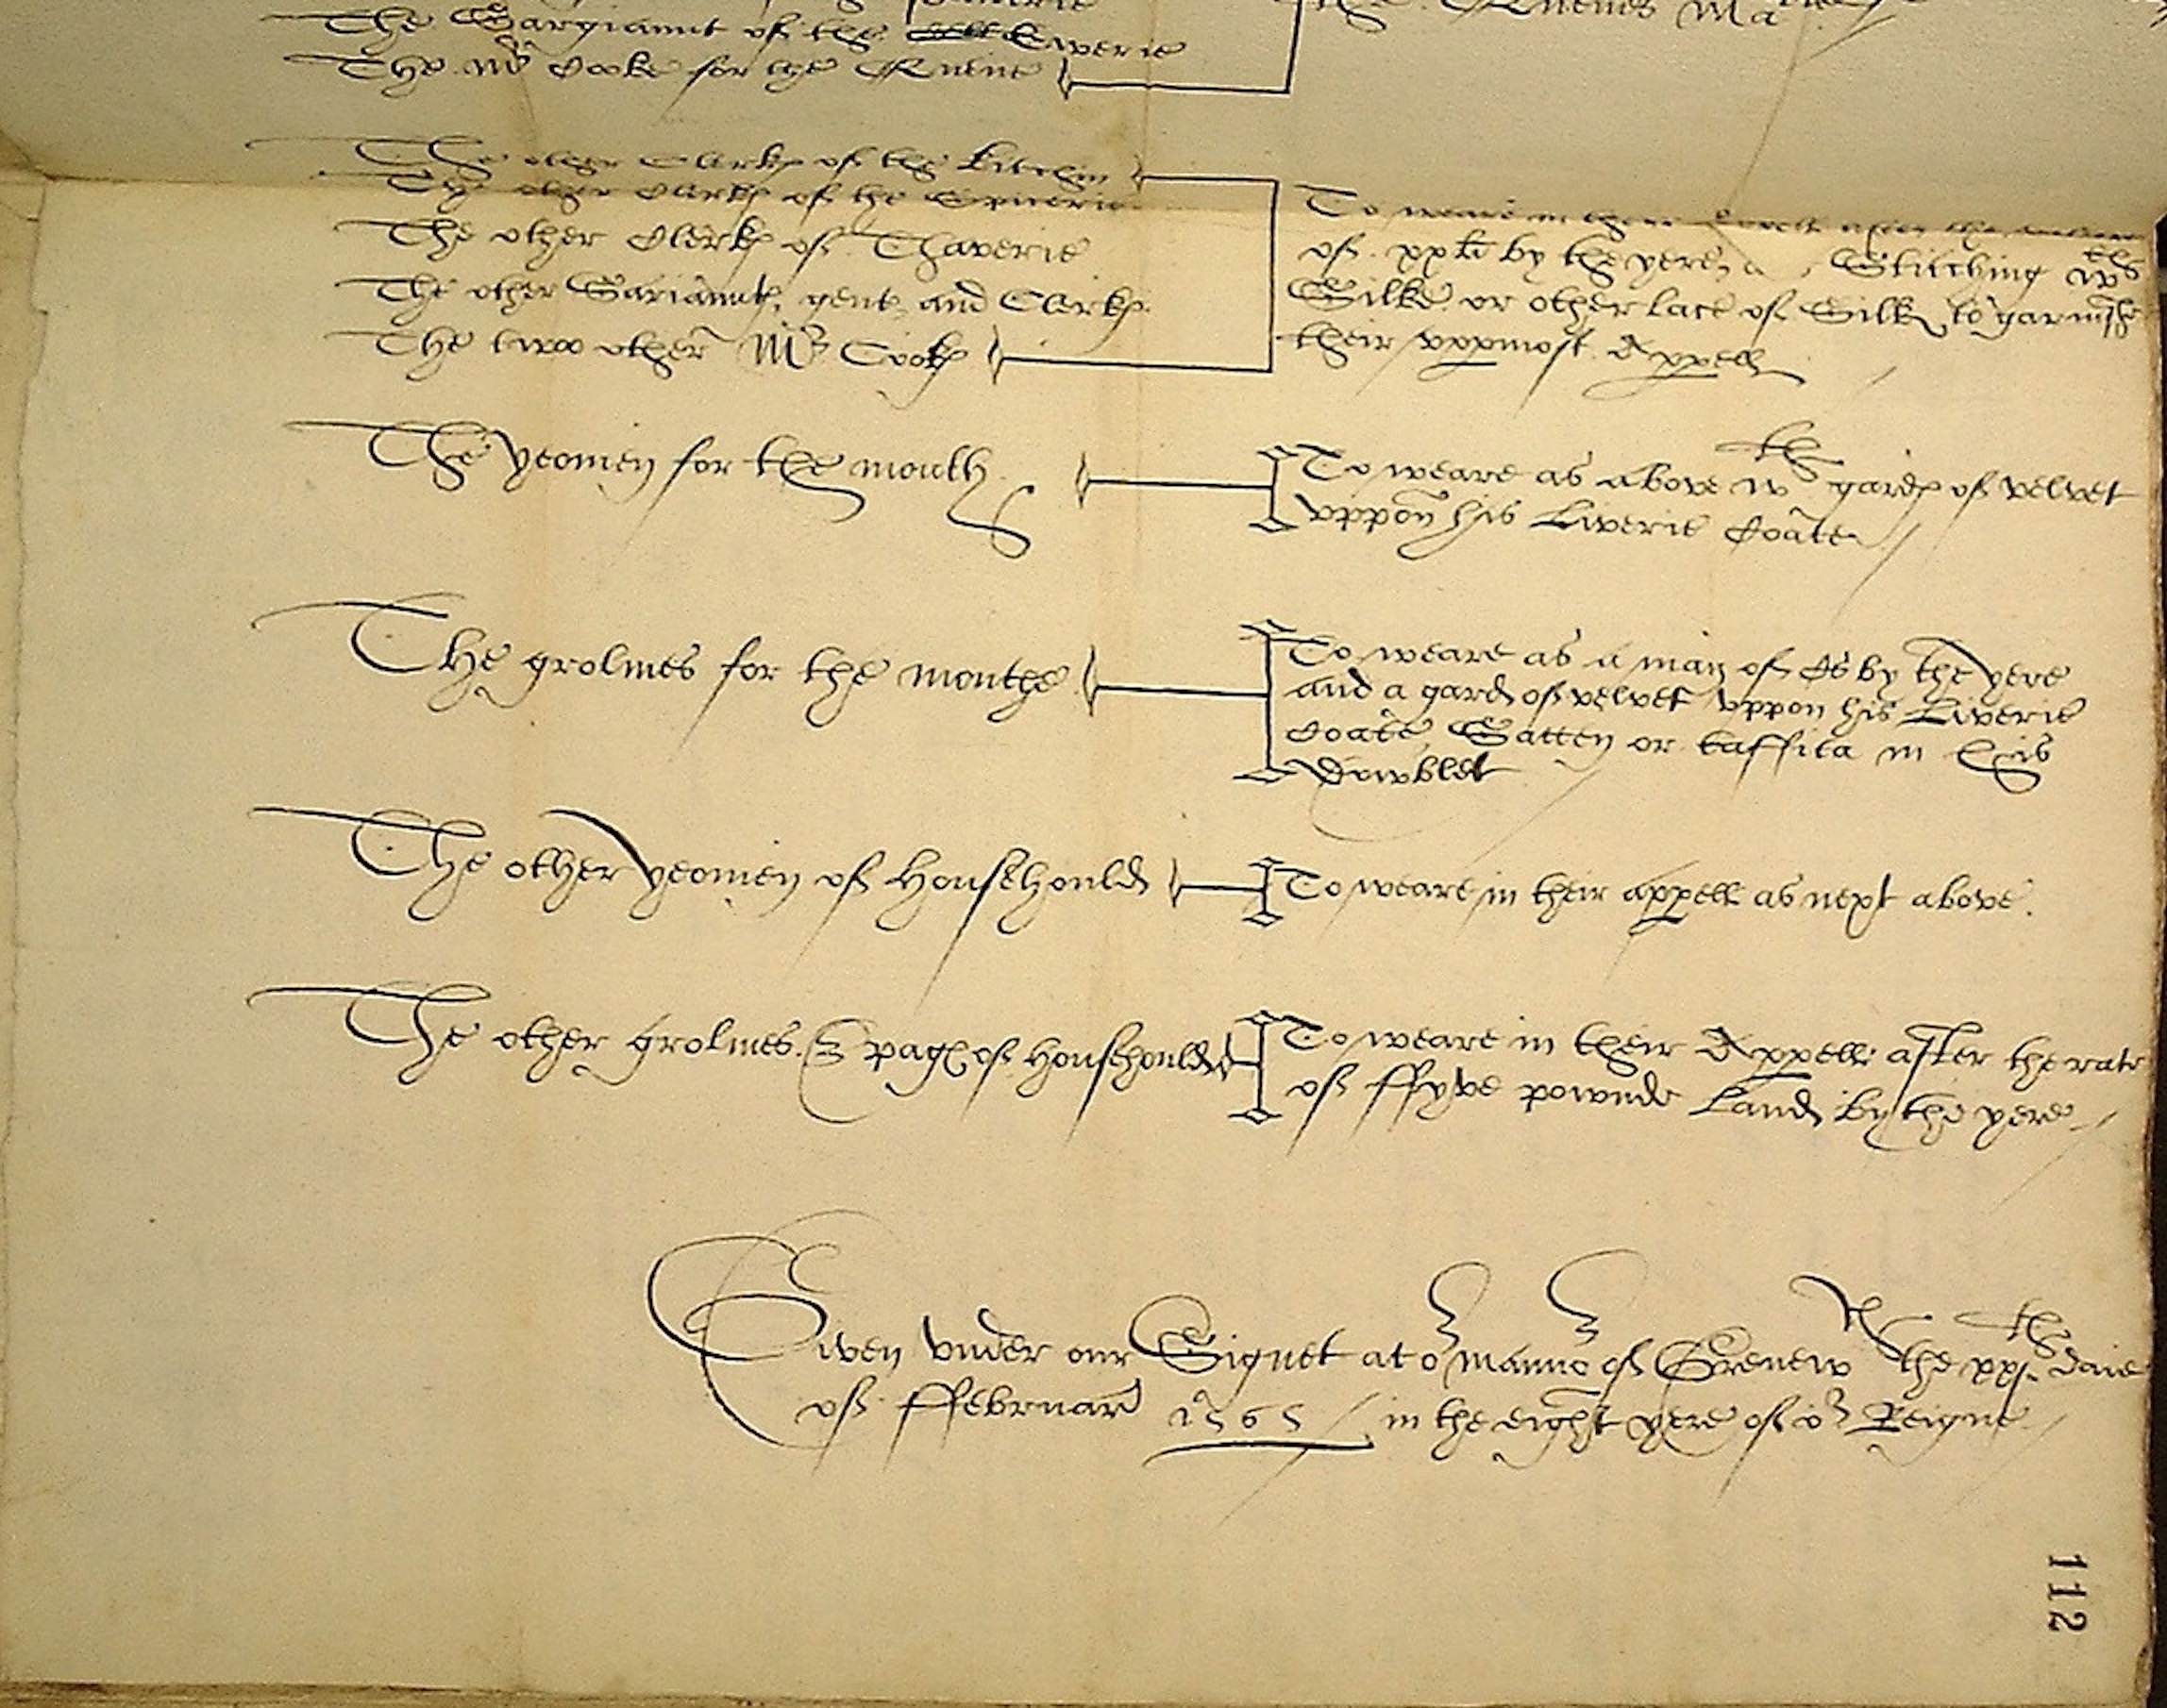 The Sargiannt of the Ewerie
The Mr Cooke for the Quene
Quenes Ma
The other Clerkes of the kitchin
The other Clerkes of the Spicerie
The other Clerkes of Thaverie
The other Sariauntes, gent, and Clerkes
The twoo other Mr Cookes
To weare in their
of xx li by the yere, Stitching wth
Silke or other lace of Silke to garnishe
their vppmost Appell
The yeomen for the mouth
To weare as above wth gardes of velvet
vppon his Liverie Coate
The gromes for the mouthe
To weare as a man of Cs by the yere
and a gard of velvet vppon his Liverie
Coate Satten or taffita in his
Dowblet
The other yeomen of Househould
To weare in their appell as next above.
The other gromes & pages of househoulde
To weare in their Appell after the rate
of ffyve pownde Land by the yere
Given vnder our Signet at or mannor of Grenewch the xxth daie
of ffebruary 1565 in the eight yere of or Reigne
112